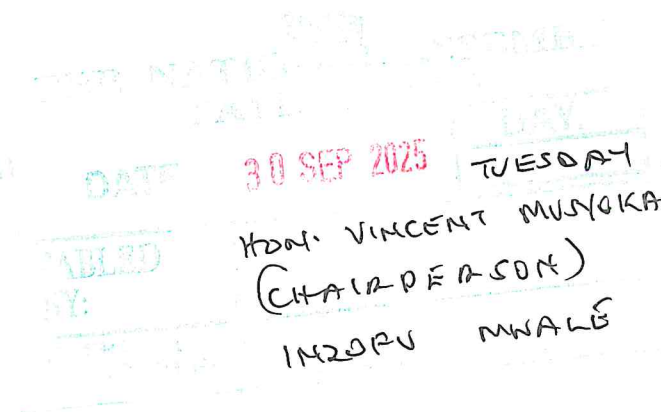 THE NATIONAL ASSEMBLY
DATE 30 SEP 2025 DAY. TUESDAY
TABLED HON. VINCENT MUSYOKA
BY: (CHAIRPERSON)
INZOFU MWALE